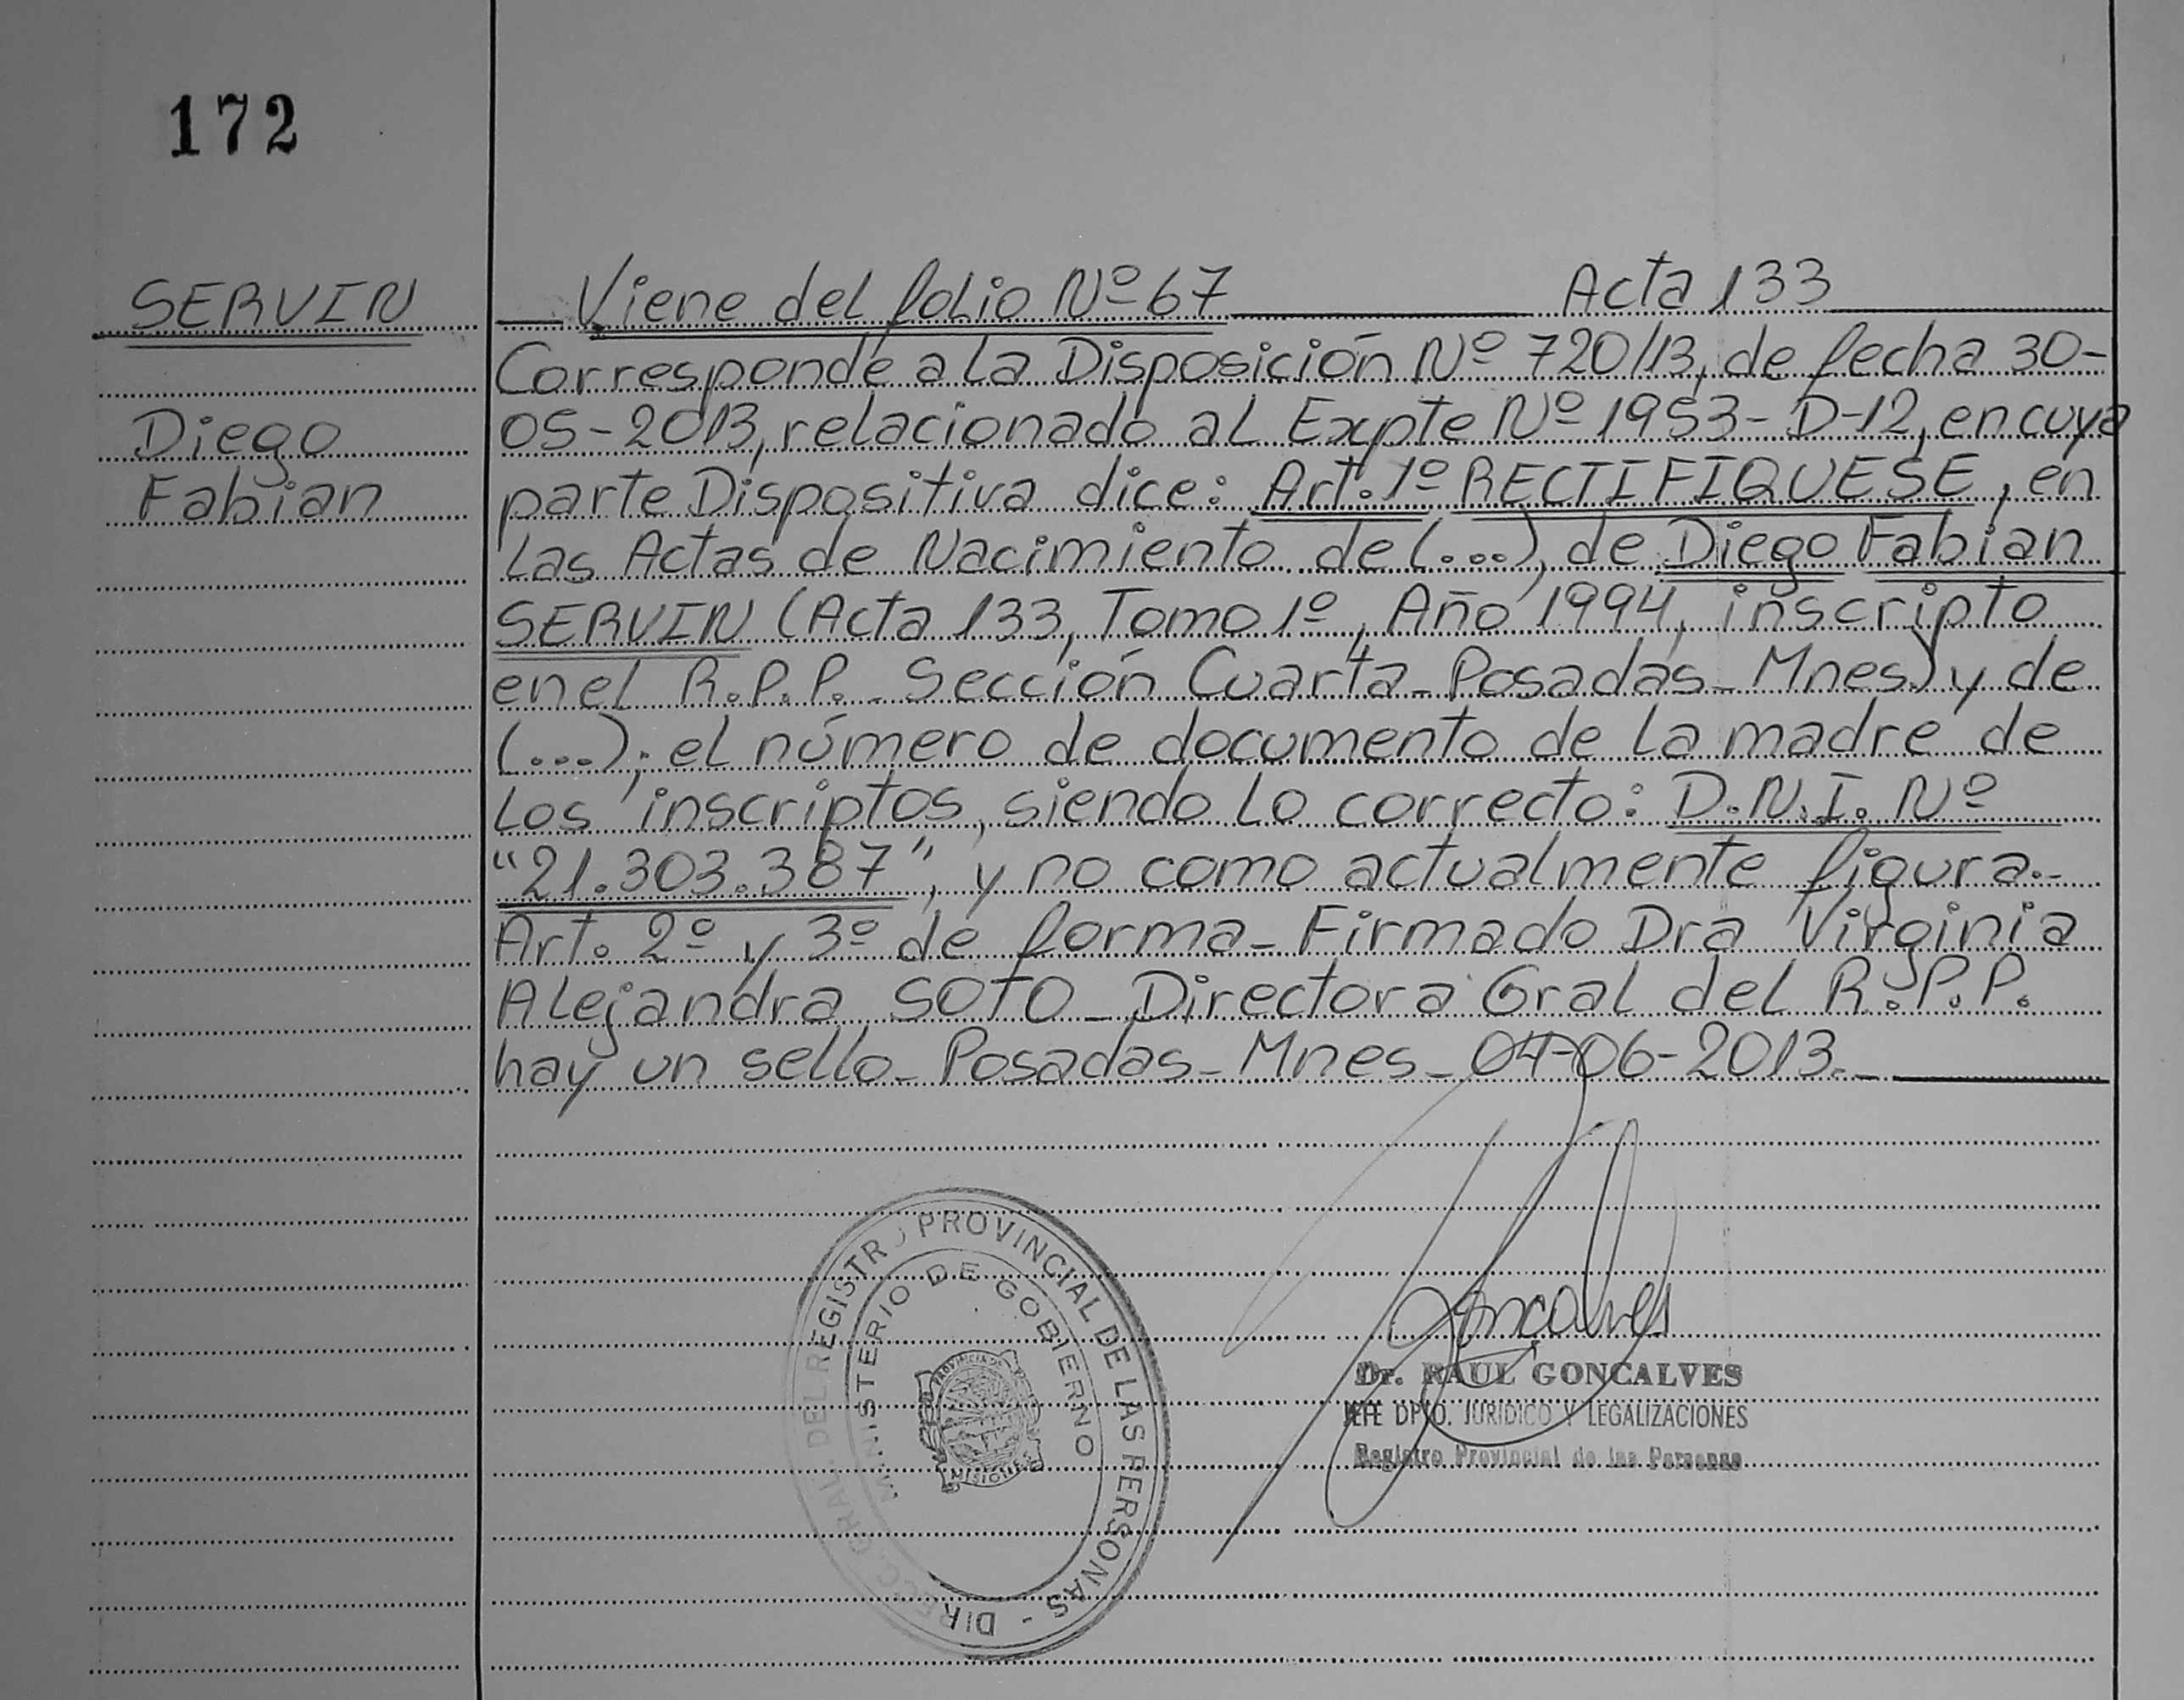 172
SERVIN
Diego
Fabian
Viene del folio Nº 67 Acta 133
Corresponde a la Disposición Nº 720/13, de fecha 30-
05-2013, relacionado al Expte Nº 1953-D-12, en cuya
parte Dispositiva dice: Art. 1º RECTIFIQUESE, en
las Actas de Nacimiento de (...), de Diego Fabian
SERVIN (Acta 133, Tomo 1º, Año 1994, inscripto
en el R.P.P. - Sección Cuarta - Posadas - Mnes) y de
(...); el número de documento de la madre de
los inscriptos, siendo lo correcto: D.N.I. Nº
"21.303.387", y no como actualmente figura.-
Art. 2º y 3º de forma - Firmado Dra Virginia
Alejandra SOTO - Directora Gral del R.P.P.
hay un sello - Posadas - Mnes - 04-06-2013.-
DIRECC. GRAL. DEL REGISTRO PROVINCIAL DE LAS PERSONAS -
MINISTERIO DE GOBIERNO
PROVINCIA DE
MISIONES
Goncalves
Dr. RAUL GONCALVES
JEFE DPTO. JURIDICO Y LEGALIZACIONES
Registro Provincial de las Personas